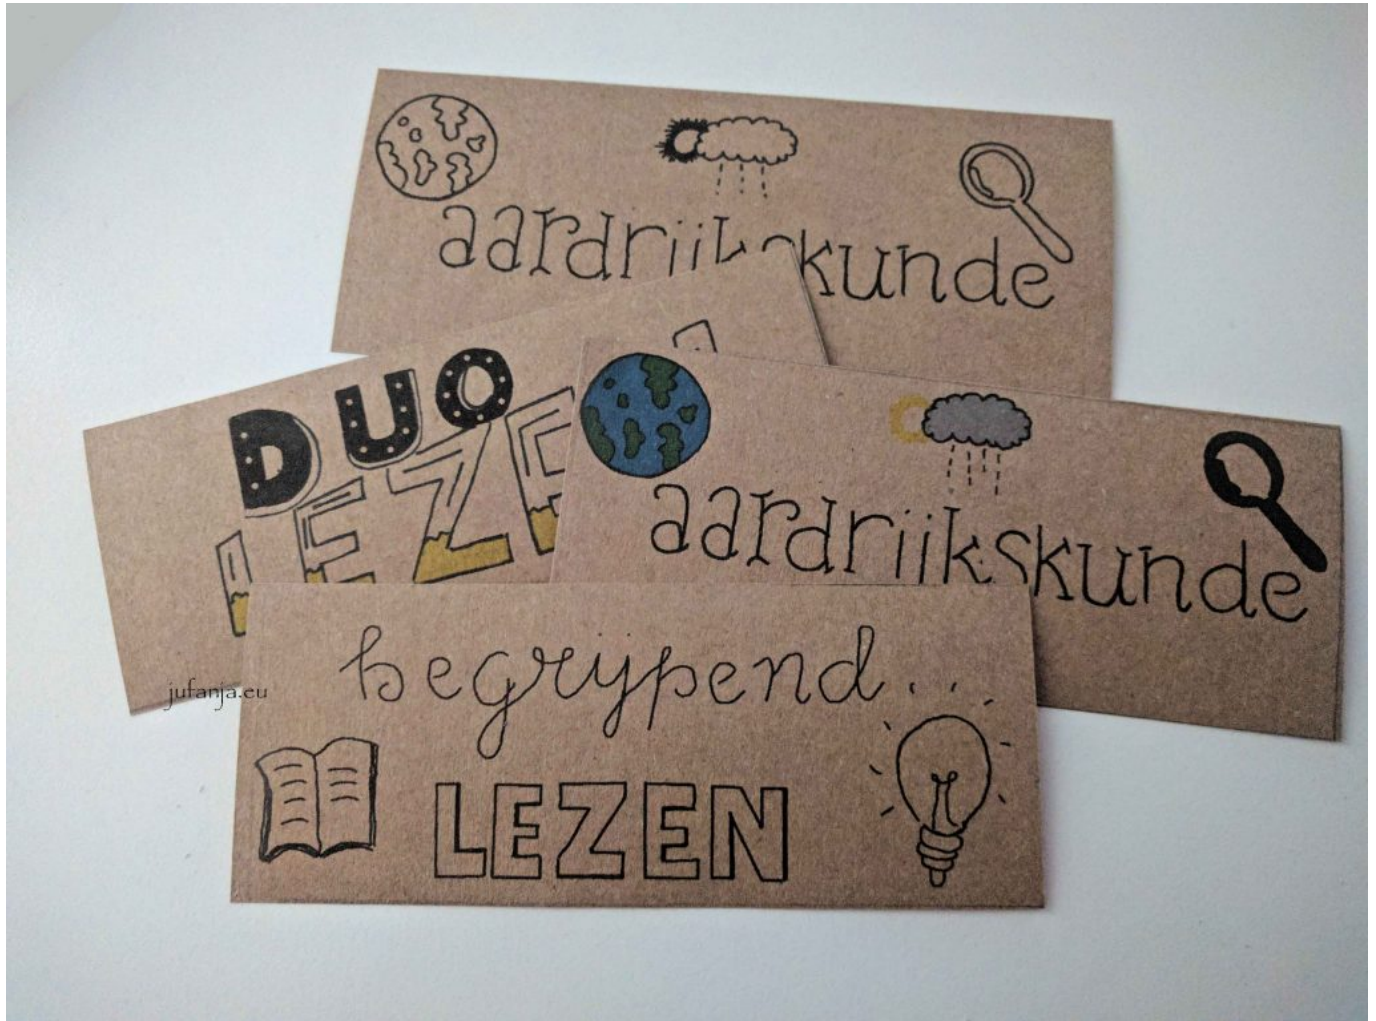 aardrijkskunde
DUO
LEZE
aardrijkskunde
jufanja.eu
begrijpend
LEZEN